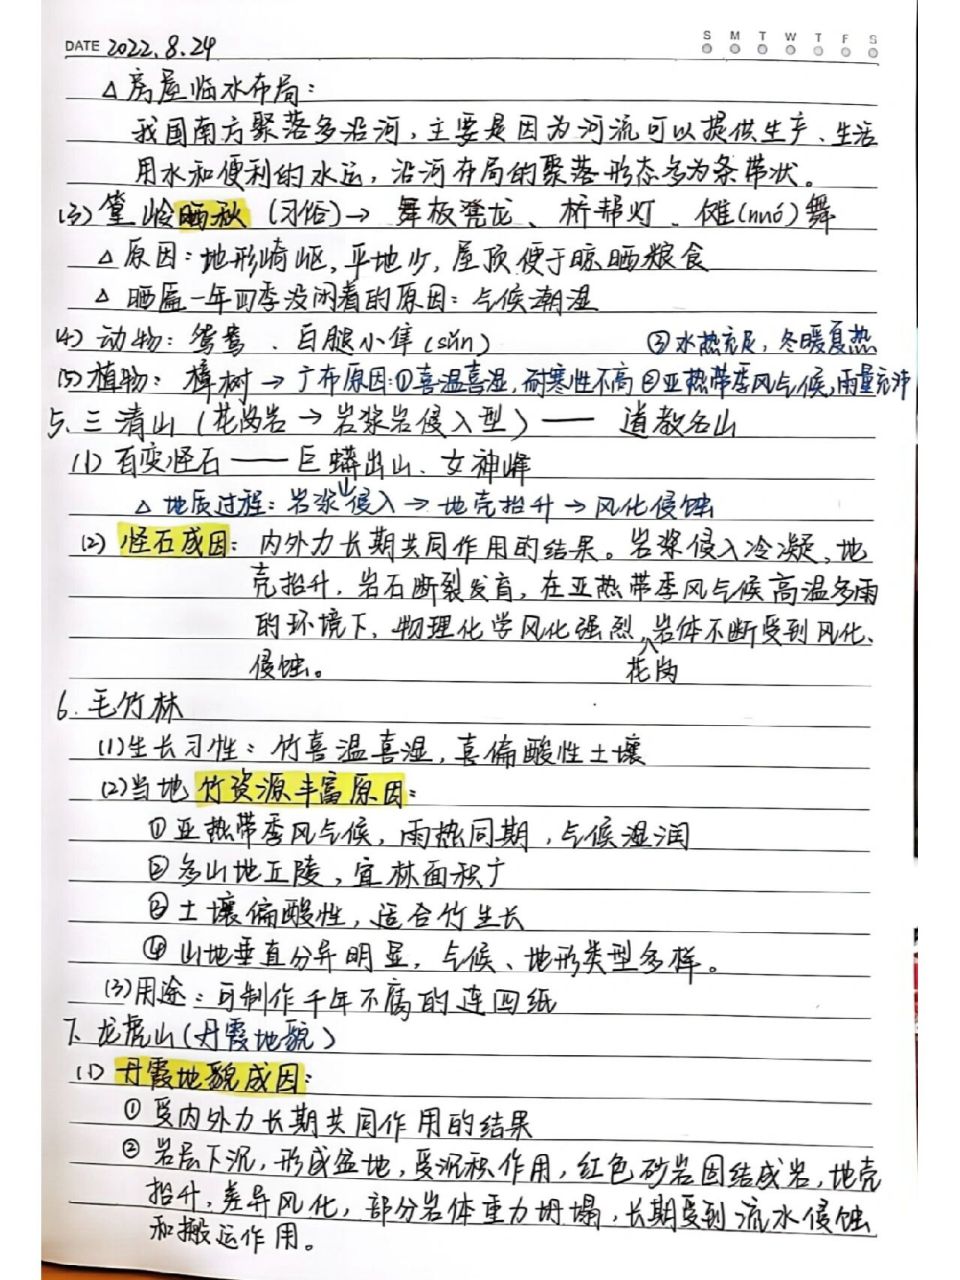 DATE 2022.8.24
S M T W T F S
△ 房屋临水布局：
我国南方聚落多沿河，主要是因为河流可以提供生产、生活
用水和便利的水运，沿河布局的聚落形态多为条带状。
(3) 篁岭晒秋（习俗）→ 舞板凳龙、桥帮灯、傩(nuó)舞
△ 原因：地形崎岖，平地少，屋顶便于晾晒粮食
△ 晒匾一年四季没闲着的原因：气候潮湿
(4) 动物：鸳鸯、白腿小隼(sǔn)
③水热充足，冬暖夏热
(5) 植物：樟树 → 广布原因：①喜温喜湿，耐寒性不高 ②亚热带季风气候，雨量充沛
5. 三清山（花岗岩 → 岩浆岩侵入型）—— 道教名山
(1) 百变怪石 —— 巨蟒出山、女神峰
△ 地质过程：岩浆侵入 → 地壳抬升 → 风化侵蚀
(2) 怪石成因：内外力长期共同作用的结果。岩浆侵入冷凝，地
壳抬升，岩石断裂发育，在亚热带季风气候高温多雨
的环境下，物理化学风化强烈，岩体不断受到风化、
花岗
侵蚀。
6. 毛竹林
(1)生长习性：竹喜温喜湿，喜偏酸性土壤
(2)当地竹资源丰富原因：
①亚热带季风气候，雨热同期，气候湿润
②多山地丘陵，宜林面积广
③土壤偏酸性，适合竹生长
④山地垂直分异明显，气候、地形类型多样。
(3)用途：可制作千年不腐的连四纸
7. 龙虎山（丹霞地貌）
(1) 丹霞地貌成因：
① 受内外力长期共同作用的结果
② 岩层下沉，形成盆地，受沉积作用，红色砂岩固结成岩，地壳
抬升，差异风化，部分岩体重力坍塌，长期受到流水侵蚀
和搬运作用。